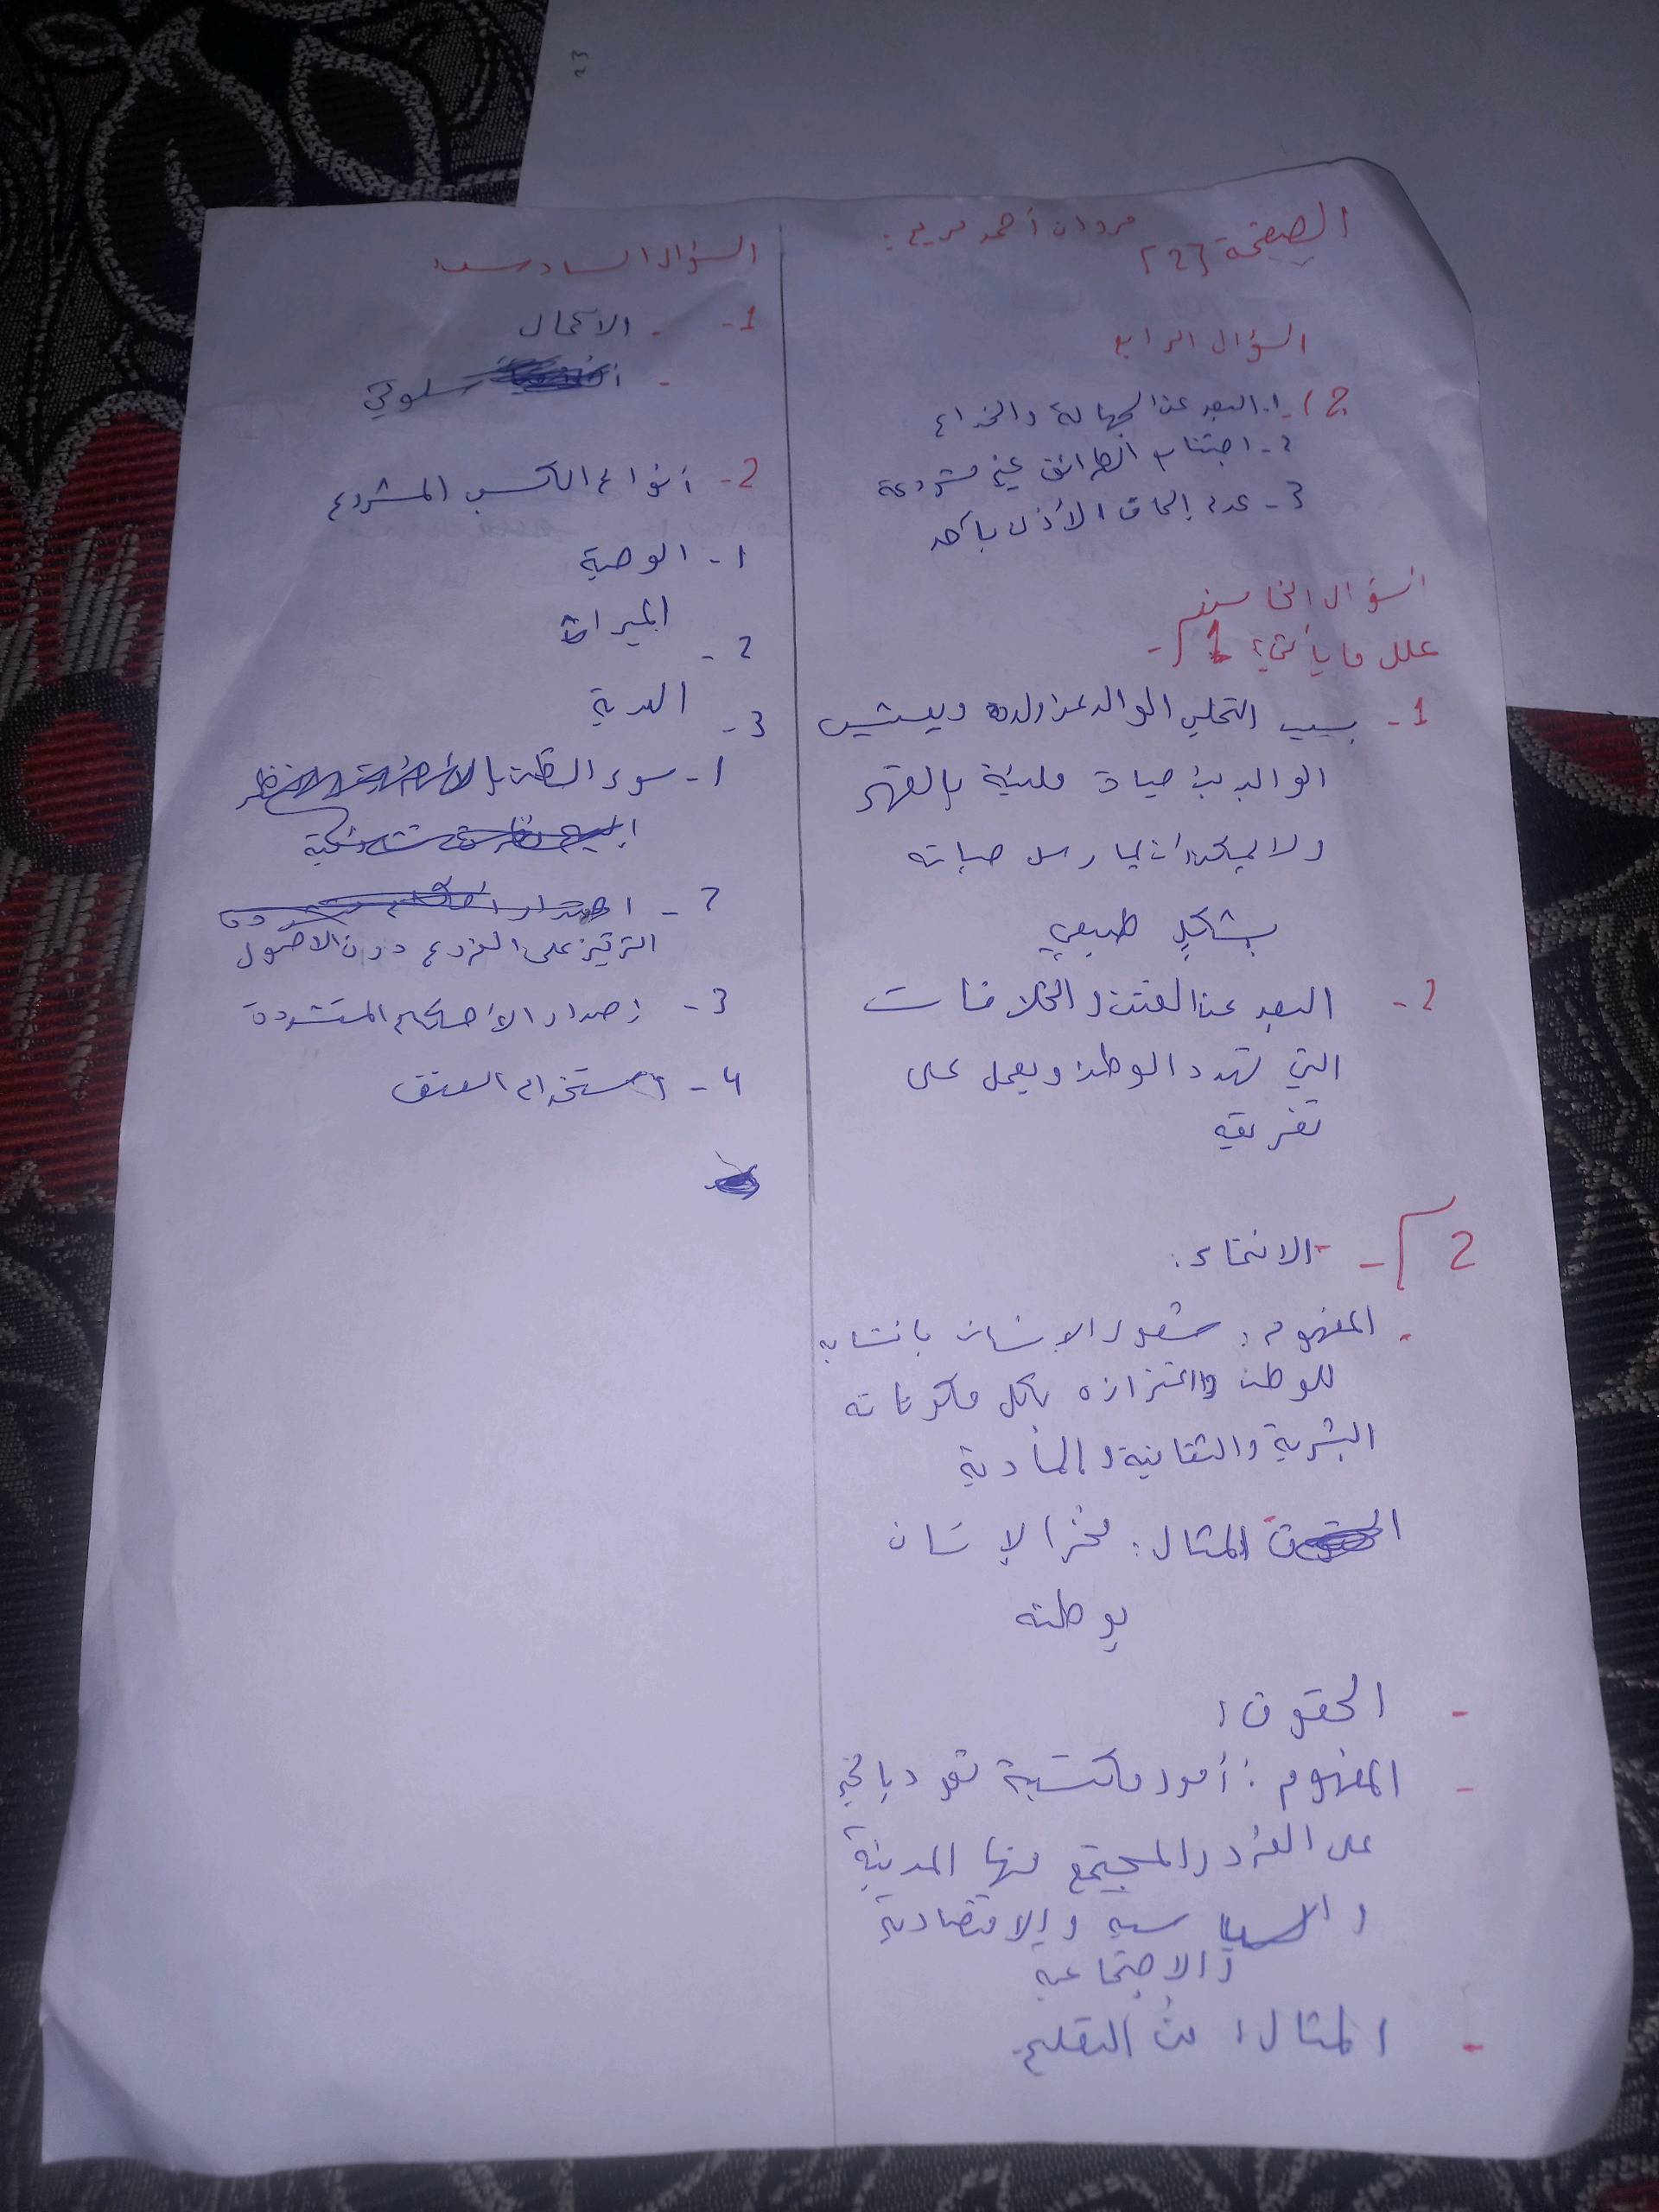 الصفحة {2}
مروان أحمد مريح:
السؤال الرابع
2) 1. البعد عن الجهالة والخداع
2- اجتناب الطرائق غير مشروعة
3- عدم إلحاق الأذى بأحد
السؤال الخامس
علل ما يأتي؛ 1 -
1- بسبب التخلي الوالد عن ولده ويعيش
الوالدين حياة مليئة بالقهر
ولا يمكن ان يمارس حياته
بشكل طبيعي
2- البعد عن الفتن والخلافات
التي تهدد الوطن ويعمل على
تفريقه
2 - الانتماء:
المفهوم: شعور الإنسان بانتسابه
للوطن واعتزازه بكل مكوناته
البشرية والثقافية والمادية
المثال: فخر الإنسان
بوطنه
- الحقوق:
- المفهوم: أمور مكتسبة تعود بالخير
على الفرد والمجتمع منها المدنية
والسياسية والاقتصادية
والاجتماعية
- المثال: التعليم
السؤال السادس
1- - الأعمال
- سلوكي
2- أنواع الكسب المشروع
1- الوصية
2- الميراث
3- الهدية
1- سوء الظن
2-
التركيز على الفروع دون الاصول
3- إصدار الأحكام المتشددة
4- استخدام العنف